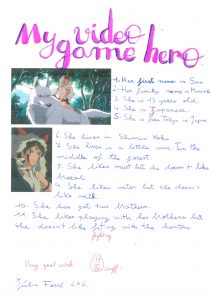 My video
game hero
1. Her first name is San
2. Her family name is Mononoke
3. She is 13 years old.
4. She is Japanese.
5. She is from Tokyo in Japan.
6. She lives in Shimin Yoko
7. She lives in a little cave. In the
middle of the forest.
8. She likes meat but she doesn't like
bread.
9. She likes water but she doesn't
like milk.
10. She has got two brothers.
11. She likes playing with her brothers but
she doesn't like fiting with the hunters.
fighting
Very good work
Júlia Ferré 6è